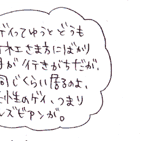 ゲイってゆうとどうも
オネエさま方にばかり
目がイイ行きがちだが、
同じくらい居るのよ、
女性のゲイ、つまり
レズビアンが。